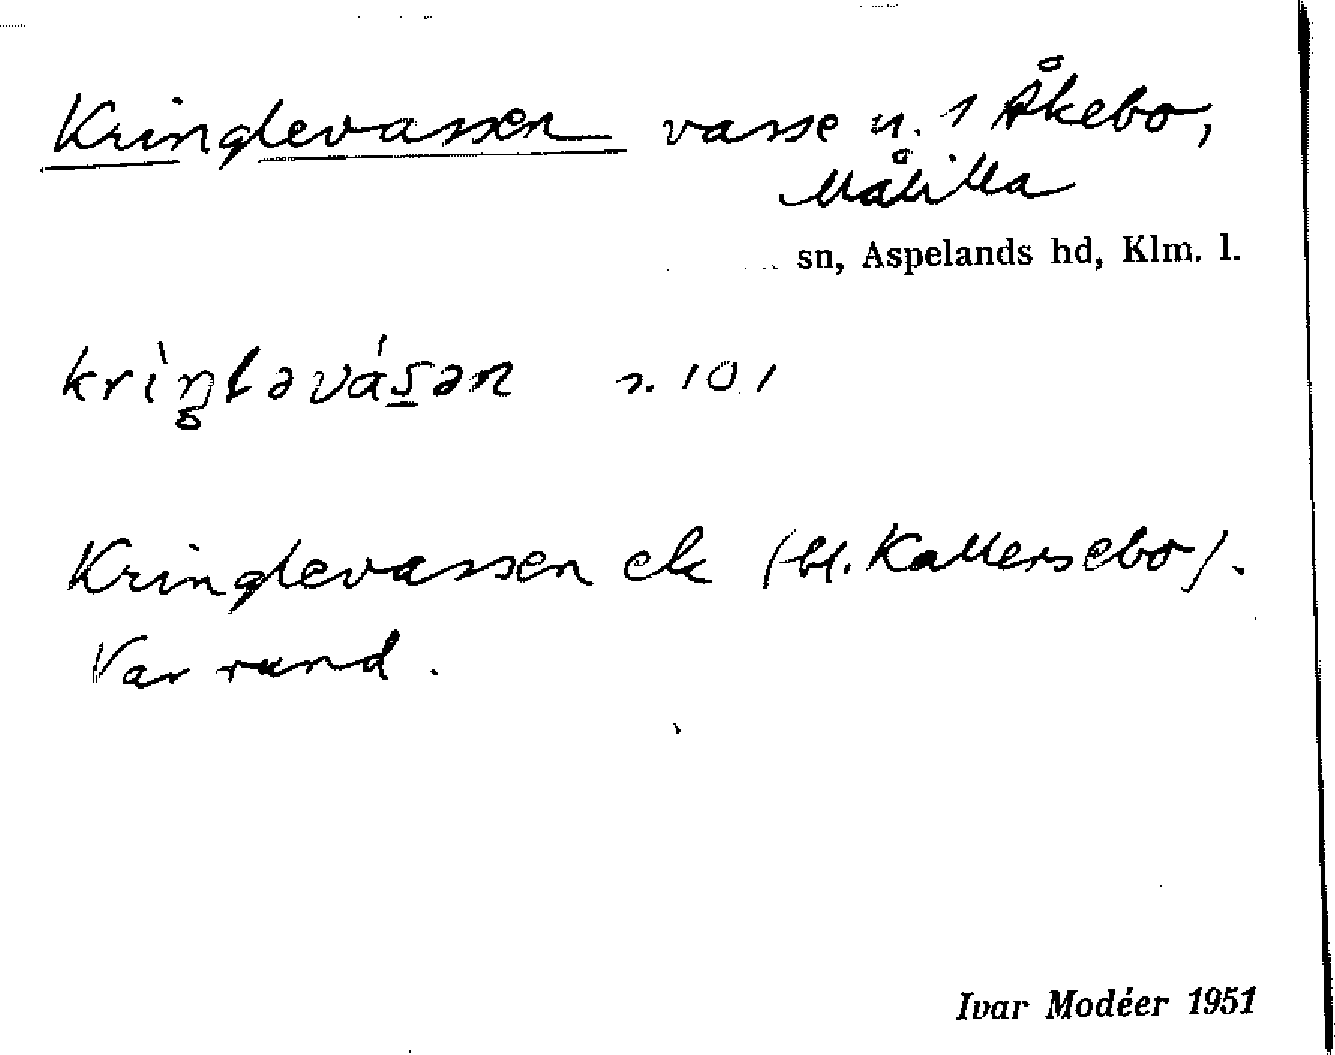 Kringlevassen vasse u. 1 Åkebo,
Målilla
sn, Aspelands hd, Klm. l.
krìŋləvásən n. 101
Kringlevassen ek (bl. Kallersebo).
Var rund.
Ivar Modéer 1951